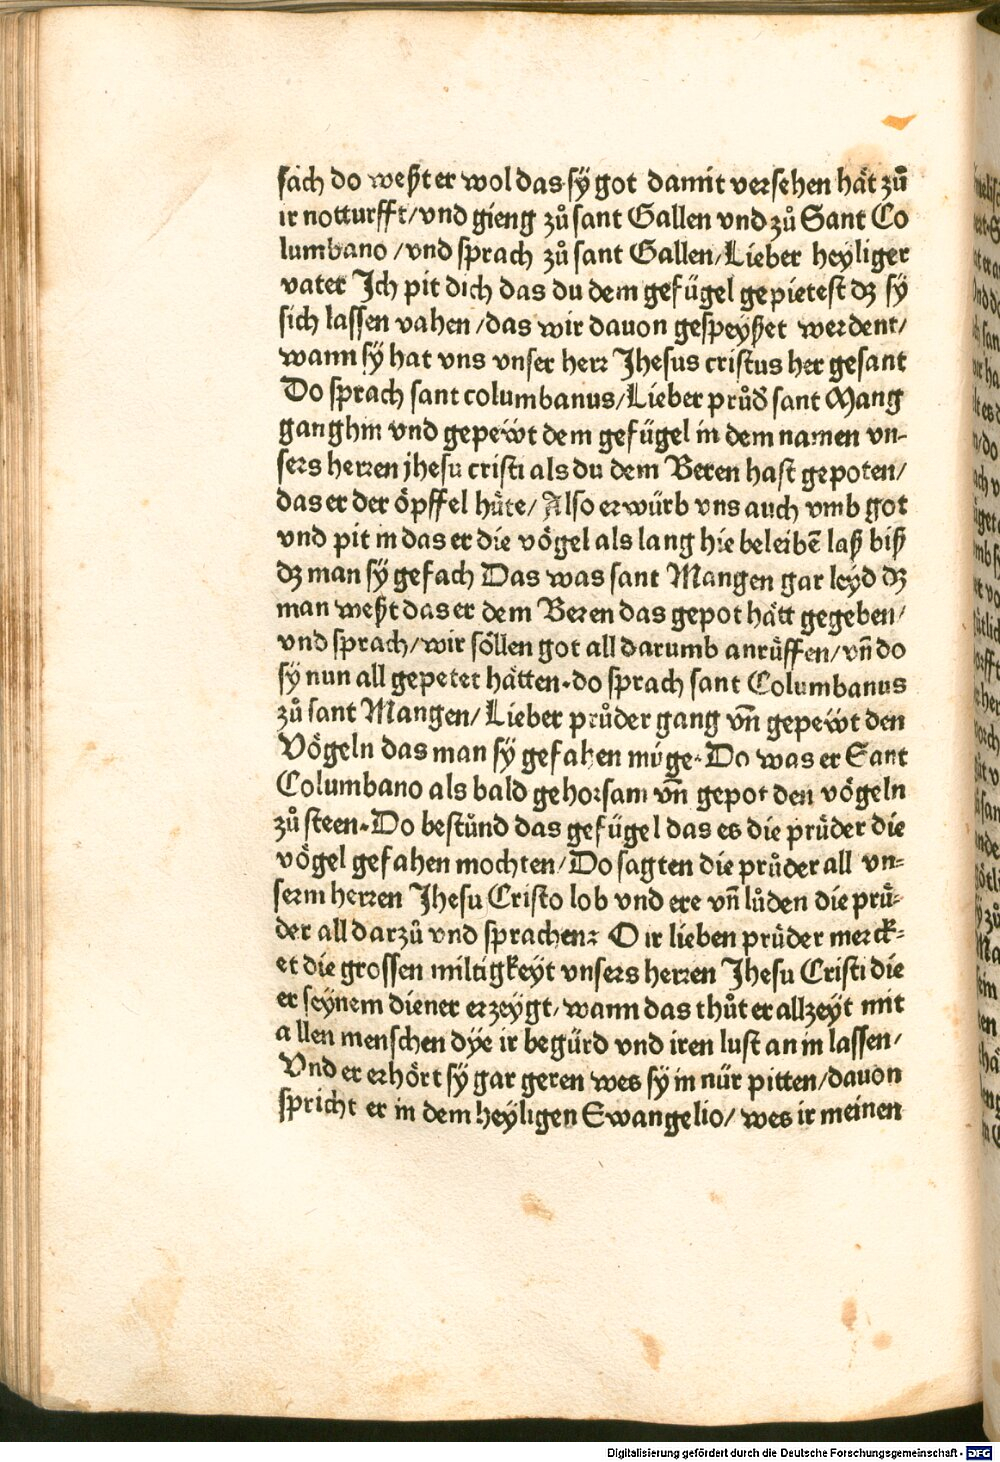 sach do weßt er wol das sÿ got damit versehen hät zů
ir notturfft/vnd gieng zů sant Gallen vnd zů Sant Co
lumbano /vnd sprach zů sant Gallen/Lieber heyliger
vater Ich pit dich das du dem gefügel gepietest dz sÿ
sich lassen vahen /das wir dauon gespeyßet werdent/
wann sÿ hat vns vnser herr Jhesus cristus her gesant
Do sprach sant columbanus/Lieber průd̕ sant Mang
gang hin vnd gepewt dem gefügel in dem namen vn-
sers herren jhesu cristi als du dem Beren hast gepoten/
das er der öpffel hüte/ Also erwürb vns auch vmb got
vnd pit in das er die vögel als lang hie beleibē laß biß
dz man sÿ gefach Das was sant Mangen gar leyd dz
man weßt das er dem Beren das gepot hätt gegeben/
vnd sprach/wir söllen got all darumb anrüffen/vn̄ do
sÿ nun all gepetet hätten.do sprach sant Columbanus
zů sant Mangen/Lieber průder gang vn̄ gepewt den
Vögeln das man sÿ gefahen müge. Do was er Sant
Columbano als bald gehorsam vn̄ gepot den vögeln
zů steen.Do bestůnd das gefügel das es die prüder die
vögel gefahen mochten/Do sagten die průder all vn=
serm herren Jhesu Cristo lob vnd ere vn̄ lůden die prü=
der all darzů vnd sprachen: O ir lieben prüder merck=
et die grossen miltigkeyt vnsers herren Jhesu Cristi die
er seynem diener erzeygt/wann das thůt er allzeyt mit
allen menschen dÿe ir begürd vnd iren lust an in lassen/
Vnd er erhört sÿ gar geren wes sÿ in nür pitten/dauon
spricht er in dem heyligen Ewangelio/ wes ir meinen
Digitalisierung gefördert durch die Deutsche Forschungsgemeinschaft - DFG